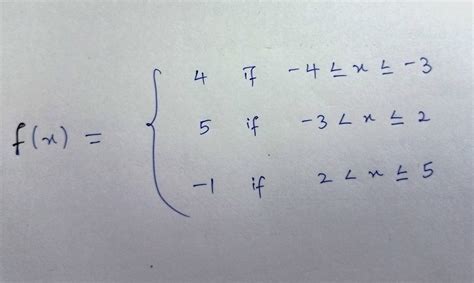 4 if -4 ≤ x ≤ -3
f(x) = { 5 if -3 < x ≤ 2
-1 if 2 < x ≤ 5